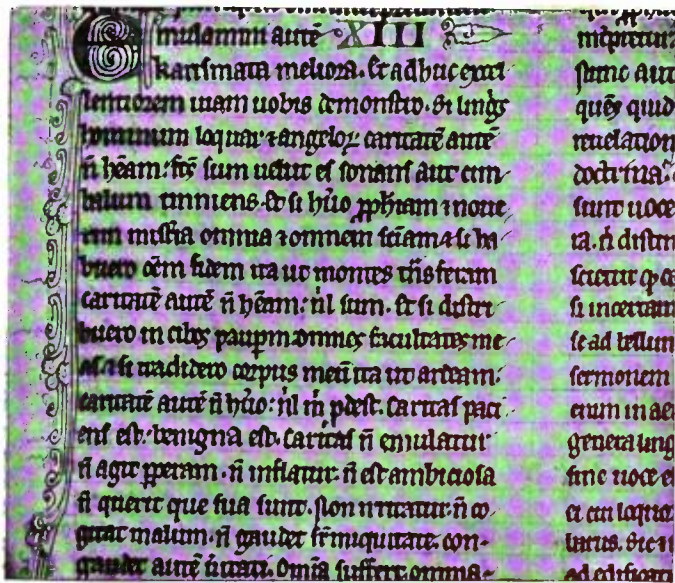 Emulamini autē XIII
karismata meliora. Et adhuc excel
lentiorem uiam uobis demonstro. Si lingis
hominum loquar ⁊ angeloꝝ caritatē autē
n̄ hēam: fcs̄ sum uelut es sonans aut cim
balum tinniens. Et si hūo ꝓphiam ⁊ noue
rim misͥia omnia ⁊ omnem sciam ⁊ si ha
buero oēm fidem ita ut montes tn̄sferam
caritatē autē n̄ hēam: nͥl sum. Et si distri
buero in cibos paupm omnes facultates me
as ⁊ si tradidero corpus meū ita ut ardeam:
caritatē autē n̄ hūo: nͥl m pdest. Caritas paci
ens est. benigna est. Caritas n̄ emulatur
n̄ agit pperam. n̄ inflatur. n̄ est ambiciosa
n̄ querit que sua sunt. Non irritatur n̄ co
gitat malum. n̄ gaudet sr̄ iniquitate. con
gaudet autē ūitati. Omīa suffert. omnia
quēs quid
reuelation
doctrina
sunt uoce
ra. n̄ distin
scietur
si incertam
se ad bellum
sermonem
enim in ae
genera ling
sine uoce e
ei cui loquor
barus. Sic
ad edificati